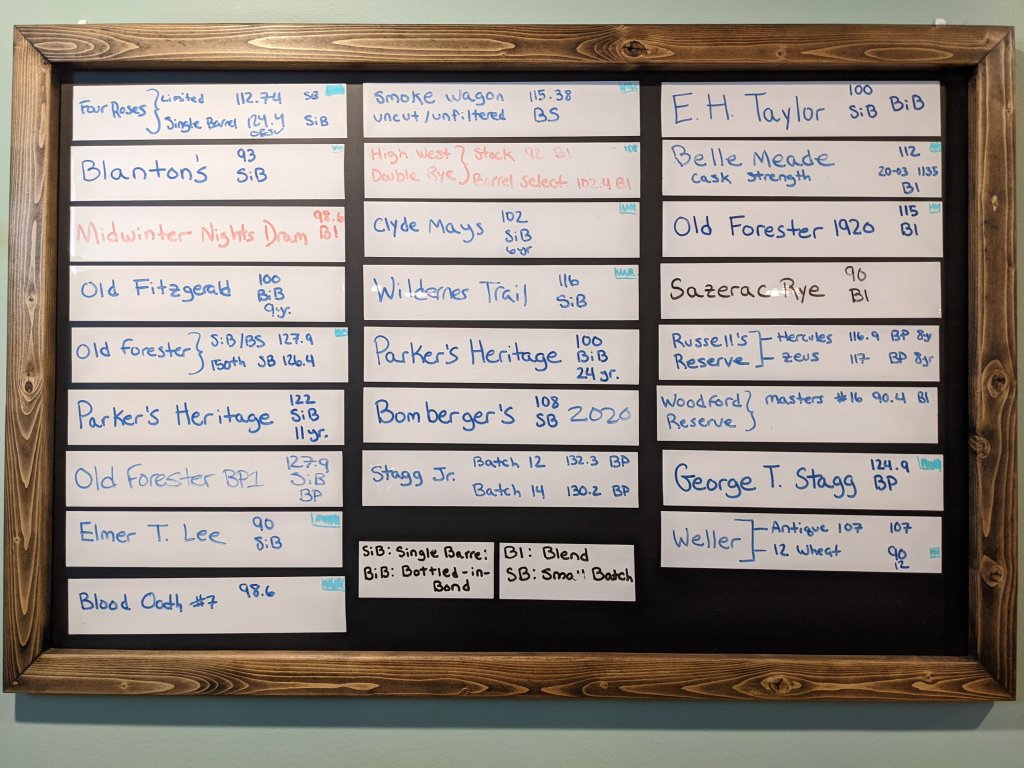 Four Roses } Limited 112.74 SB
Single Barrel 124.4 SiB
OESV
Blanton's 93
SiB
Midwinter Nights Dram 98.6
Bl
Old Fitzgerald 100
BiB
9yr.
Old Forester } SiB/BS 127.9
150th SB 126.4
Parker's Heritage 122
SiB
11yr.
Old Forester BP1 127.9
SiB
BP
Elmer T. Lee 90
SiB
Blood Oath #7 98.6
Smoke Wagon 115.38
uncut/unfiltered BS
High West } Stock 92 Bl
Double Rye Barrel Select 102.4 Bl
Clyde Mays 102
SiB
6yr
Wildernes Trail 116
SiB
Parker's Heritage 100
BiB
24 yr.
Bomberger's 108 2020
SB
Stagg Jr. Batch 12 132.3 BP
Batch 14 130.2 BP
SiB: Single Barrel
BiB: Bottled-in-
Bond
Bl: Blend
SB: Small Batch
E. H. Taylor 100 BiB
SiB
Belle Meade 112
Cask Strength 20-03 1135
Bl
Old Forester 1920 115
Bl
Sazerac Rye 90
Bl
Russell's Hercules 116.9 BP 8yr
Reserve Zeus 117 BP 8yr
Woodford } Masters #16 90.4 Bl
Reserve
George T. Stagg 124.9
BP
Weller Antique 107 107
12 Wheat 90
12